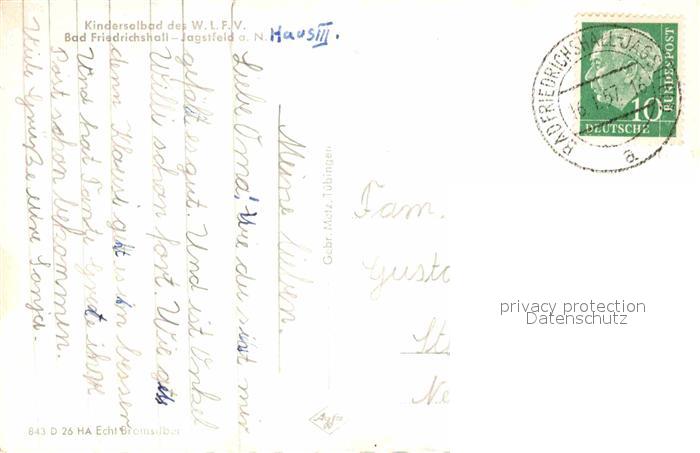 Kindersolbad des W. L. F. V.
Bad Friedrichshall – Jagstfeld a. N.
Haus III.
Meine Lieben.
Liebe Oma! Wie du siet mir
gefällt es gut. Und ist Onkel
Willi schon fort. Wie gets
denn Klausi geht es ihm besser
Und hat Tante Gerda ihre
Post schon bekommen.
Viele Grüße eure Sonja.
843 D 26 HA Echt Bromsilber
Gebr. Metz, Tübingen
Fam.
Gusta
St
Ne
BAD FRIEDRICHSHALL-JAGST
57
a
DEUTSCHE
BUNDESPOST
10
privacy protection
Datenschutz